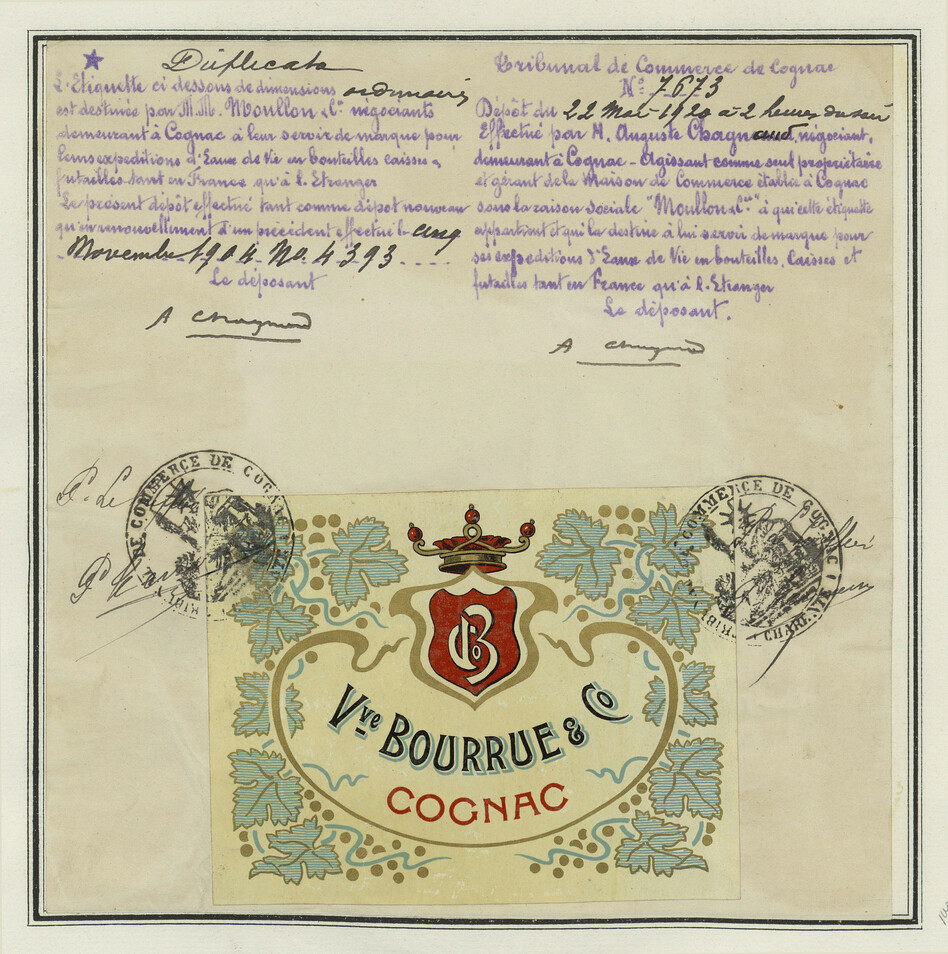 Duplicata
L'Etiquette ci dessous de dimensions ordinaires
est destinée par M.M. Moullon & Cie négociants
demeurant à Cognac à leur servir de marque pour
leurs expeditions d'Eaux de Vie en bouteilles caisses &
futailles tant en France qu'à l'Etranger
Le présent dépôt effectué tant comme dépot nouveau
qu'en renouvellement d'un précédent effectué le cinq
Novembre 1904 No. 4393
Le déposant
A Chagnaud
Tribunal de Commerce de Cognac
No 7673
Dépôt du 22 Mai 1920 à 2 heures du soir
Effectué par M. Auguste Chagnaud, négociant,
demeurant à Cognac - Agissant comme seul propriétaire
et gérant de la Maison de Commerce établie à Cognac
sous la raison sociale "Moullon & Cie" à qui cette étiquette
appartient et qui la destine à lui servir de marque pour
ses expeditions d'Eaux de Vie en bouteilles, Caisses et
futailles tant en France qu'à l'Etranger
Le déposant.
A Chagnaud
DE COMMERCE DE COGNAC
COMMERCE DE COGNAC
CHARENTE
B Co
Vve BOURRUE & Co
COGNAC